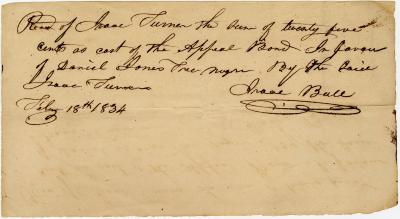 Recd of Isaac Turner the sum of twenty five
cents as cost of the Appeal Bond In favour
of Daniel Jones free negro By the said
Isaac Turner
Isaac Ball
Feby 18th 1834